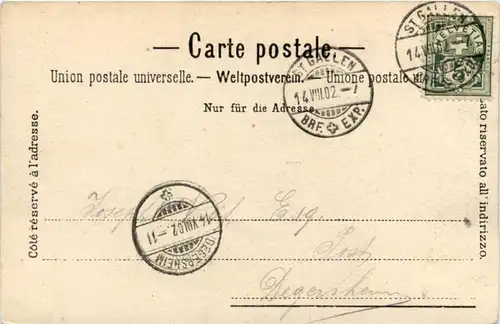 — Carte postale. —
Union postale universelle. — Weltpostverein. — Unione postale
Nur für die Adresse
Côté réservé à l'adresse.
lato riservato all'indirizzo.
ST. GALLEN
14.VIII.02.–7
BRF. EXP.
ST. GALLEN
14.VIII.02
HELVETIA
5
14.VIII.02.–11
DEGERSHEIM
Esq
Post
Degersheim